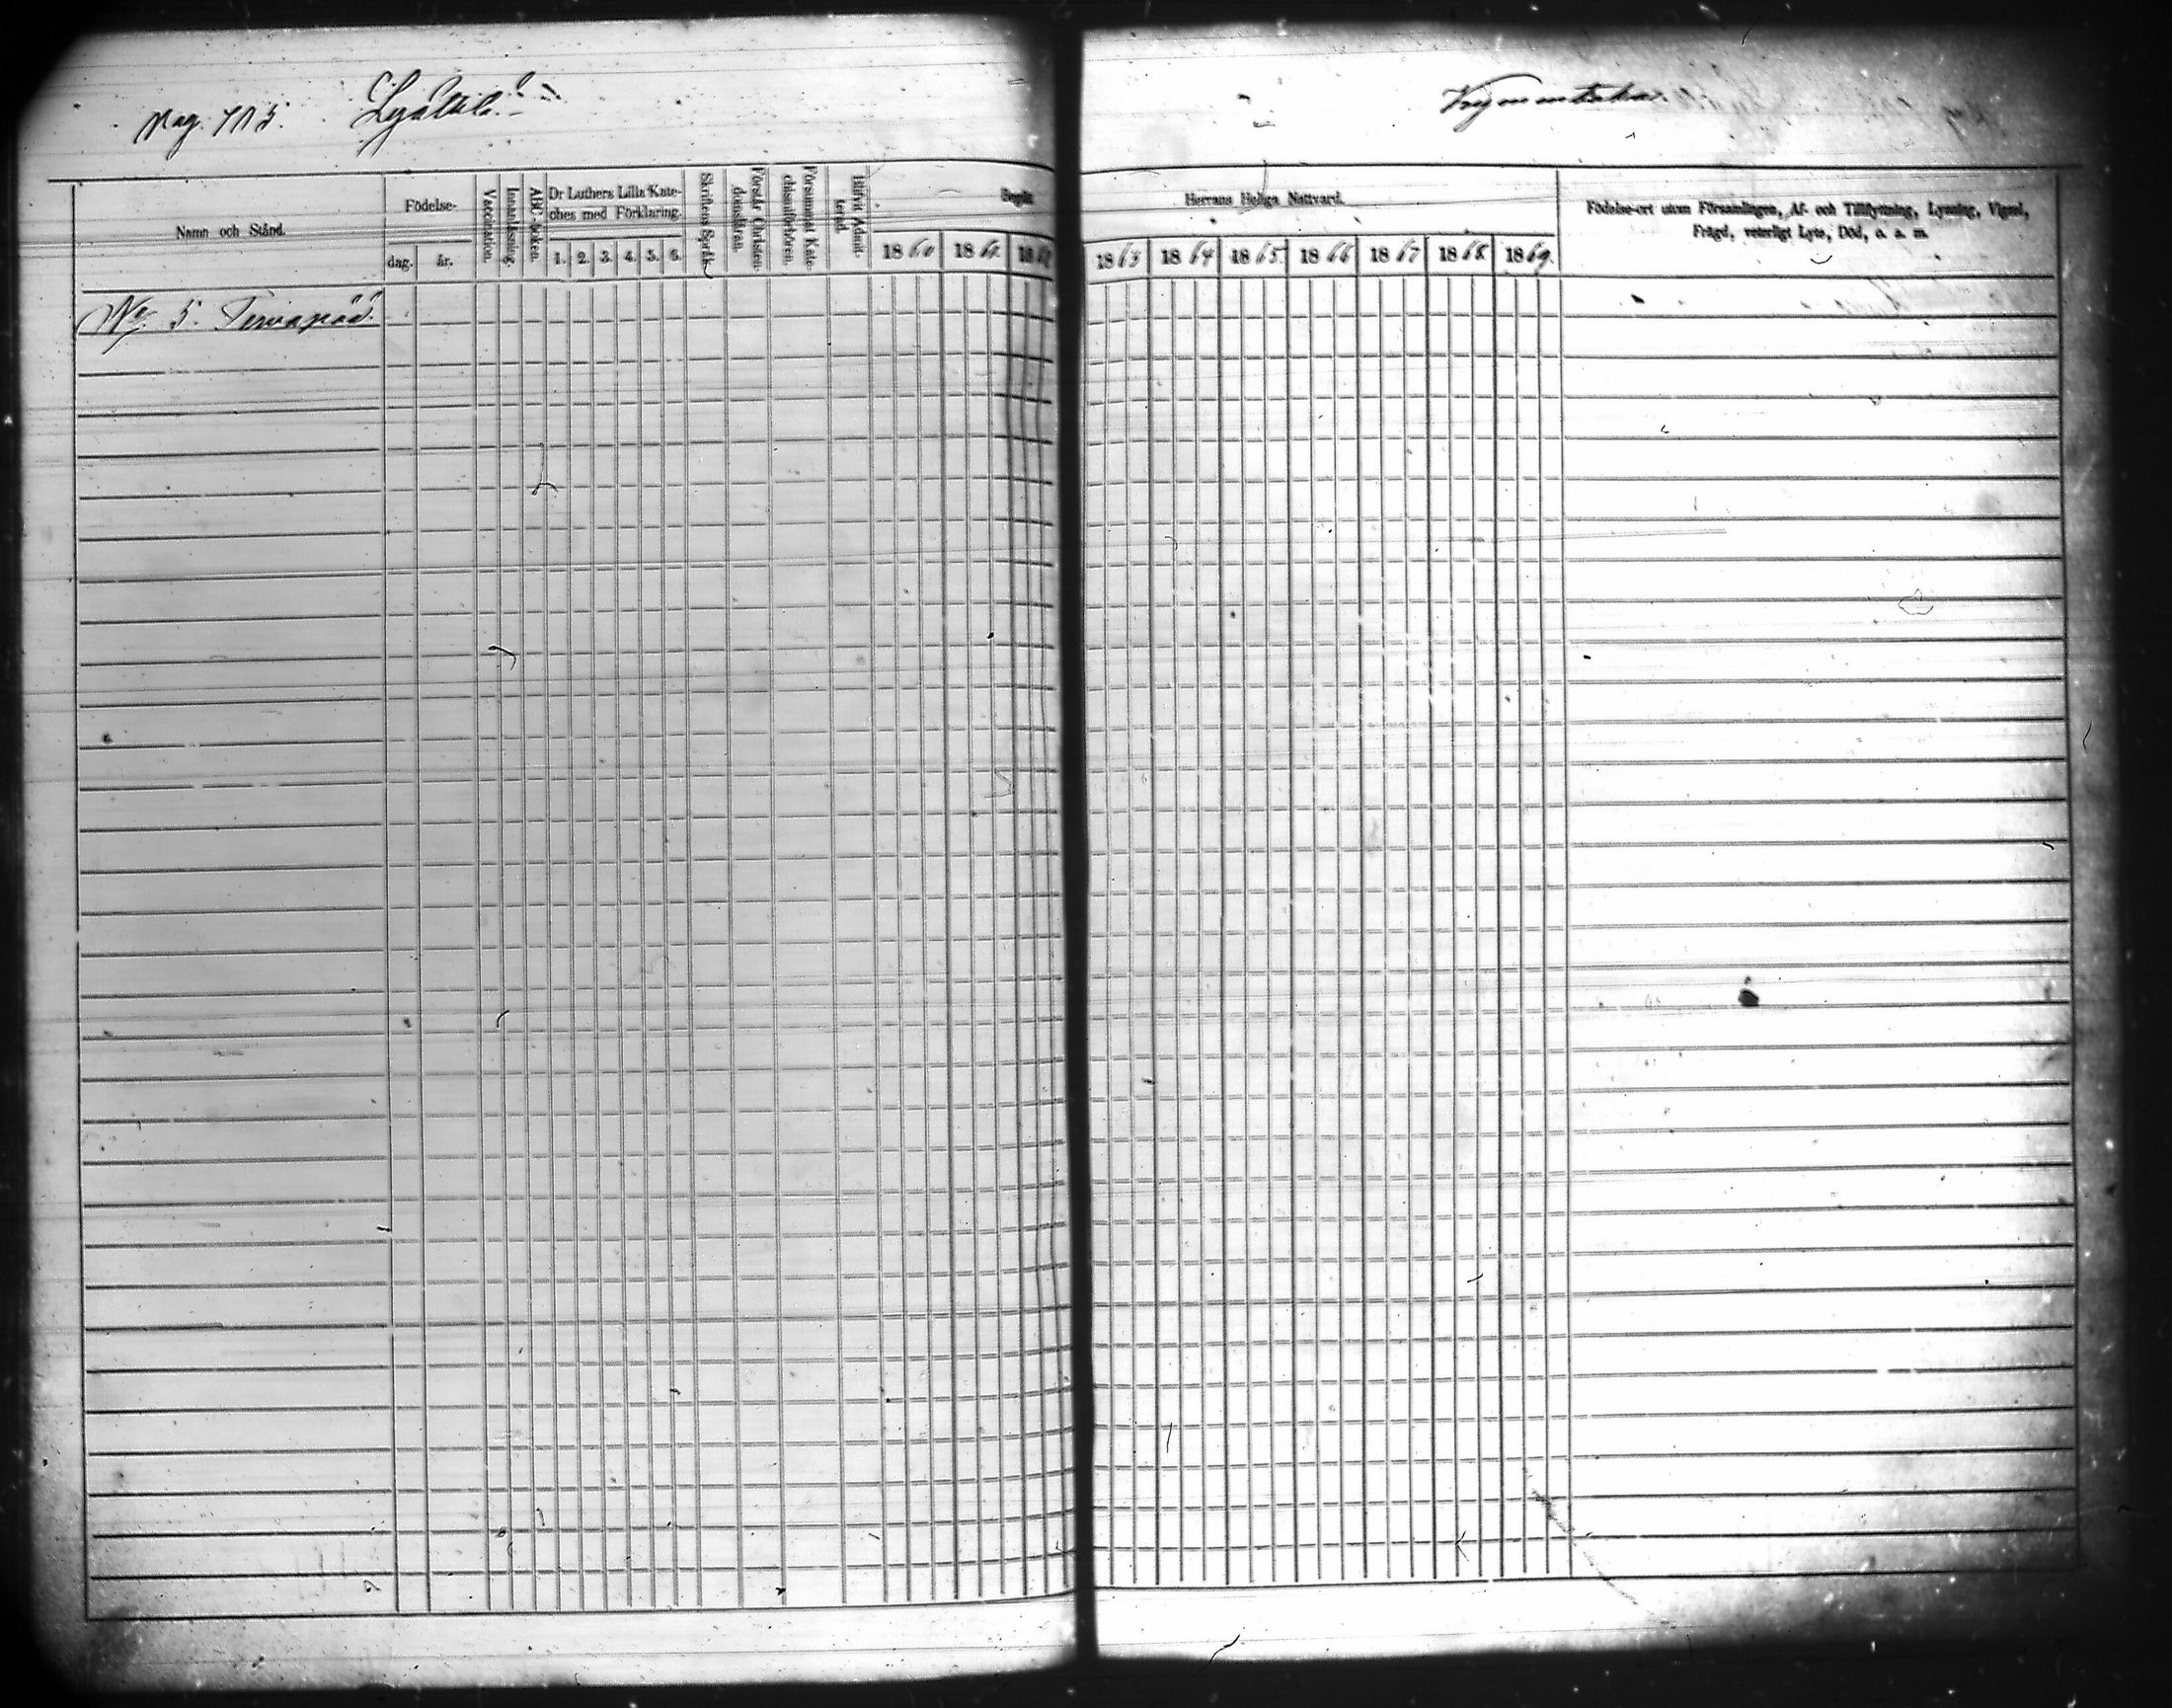 Pag. 715.
Kymmenkska.
Namn och Stånd.
Födelse-
dag.
år.
Vaccination.
Innanläsning.
ABC-boken.
Dr Luthers Lilla Kate-
ches med Förklaring.
1. 2. 3. 4. 5. 6.
Skriftens Språk.
Förstår Christen-
domsläran.
Försummat Kate-
chismiförhören.
Blifvit Admit-
terad.
Begått
Herrans Heliga Nattvard.
1860 1861. 1862
1863 1864 1865. 1866 1867 1868. 1869.
Födelse-ort utom Församlingen, Af- och Tillflyttning, Lysning, Vigsel,
Frägd, veterligt Lyte, Död, o. s. m.
No 5. Tervapää.